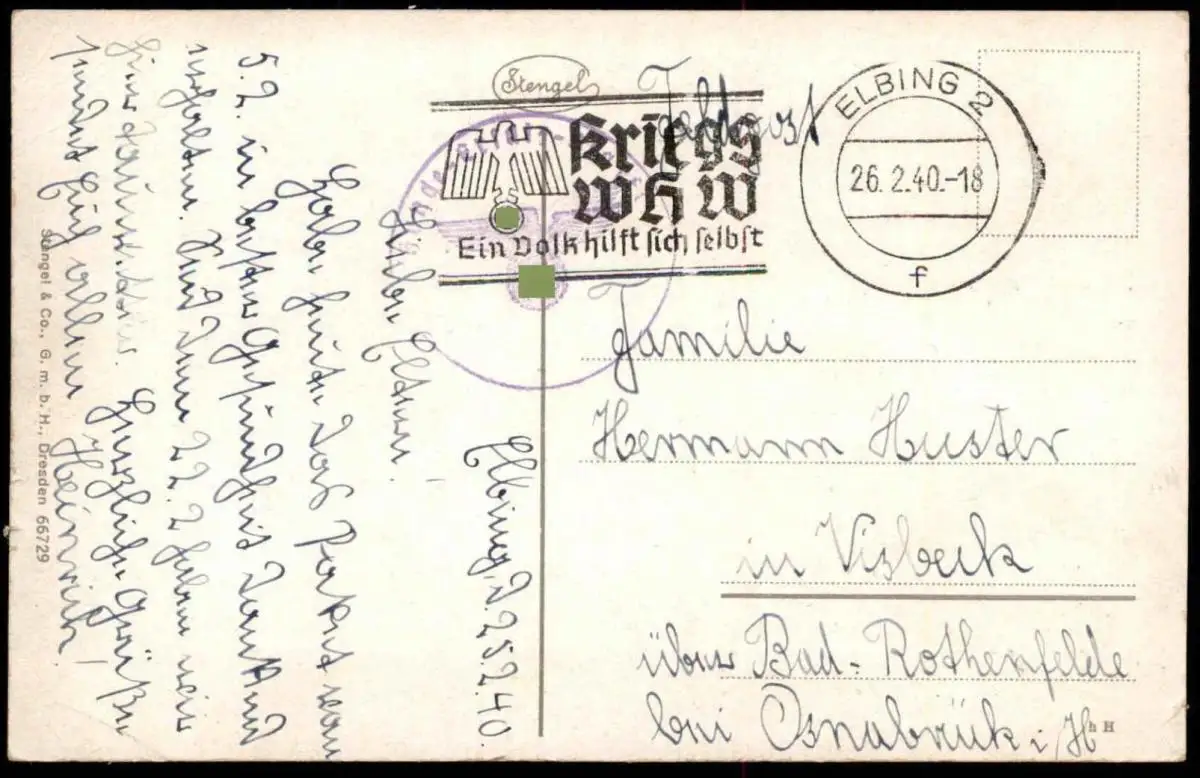 Stengel
Feldpost
Kriegs
WHW
Ein Volk hilft sich selbst
ELBING 2
26. 2. 40.-18
f
Familie
Hermann Huster
in Visbeck
über Bad-Rothenfelde
bei Osnabrück i. H
Elbing, d. 25.2.40.
Lieben Eltern!
Habe heute das Paket vom
5.2. in bester Gesundheit dankend
erhalten. Sind dem 22.2 haben wir
hier
Herzliche Grüße
sendet Euch allen
Heinrich!
Stengel & Co., G. m. b. H., Dresden 66729